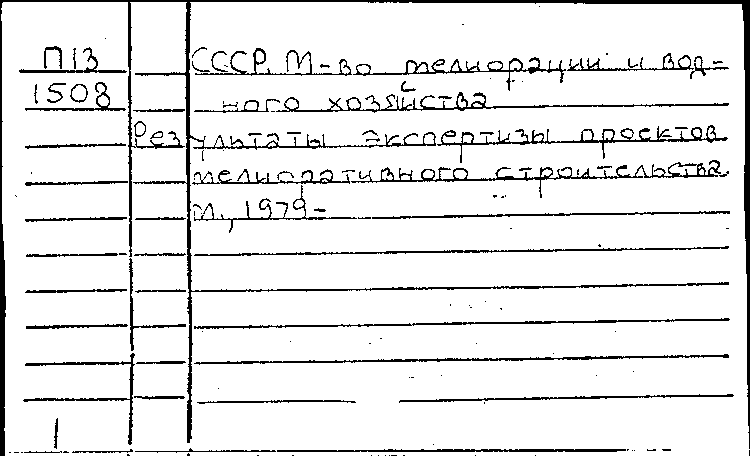 П13 СССР. М-во мелиорации и вод-
1508 ного хозяйства
Результаты экспертизы проектов
мелиоративного строительства.
М., 1979-
1